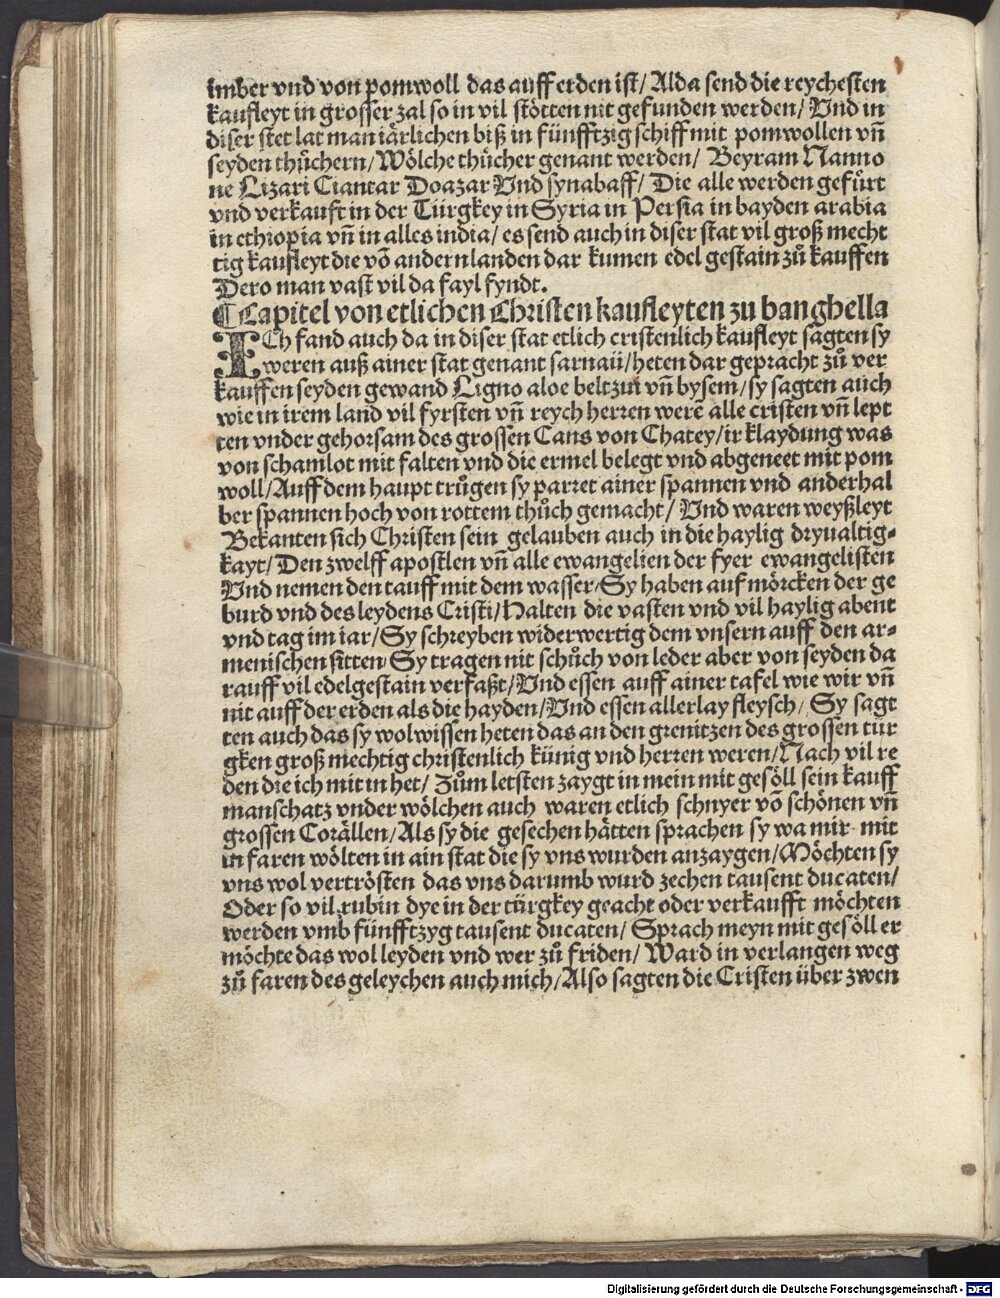 imber vnd von pomwoll das auff erden ist/ Alda send die reychesten
kaufleyt in grosser zal so in vil stötten nit gefunden werden/ Vnd in
diser stet lat man iärlichen biß in fünfftzig schiff mit pomwollen vñ
seyden thůchern/ Wölche thůcher genant werden/ Beyram Nanno
ne Lizari Ciantar Doazar Vnd synabaff/ Die alle werden gefůrt
vnd verkauft in der Türgkey in Syria in Persia in bayden arabia
in ethiopia vñ in alles india/ es send auch in diser stat vil groß mecht
tig kaufleyt die võ andern landen dar kumen edel gestain zů kauffen
Dero man vast vil da fayl fyndt.
¶Capitel von etlichen Christen kaufleyten zu banghella
ICh fand auch da in diser stat etlich cristenlich kaufleyt sagten sy
weren auß ainer stat genant sarnaü/ heten dar gepracht zů ver
kauffen seyden gewand Ligno aloe beltzui vñ bysem/ sy sagten auch
wie in irem land vil fyrsten vñ reych herren werẽ alle cristen vñ lept
ten vnder gehorsam des grossen Cans von Chatey/ ir klaydung was
von schamlot mit falten vnd die ermel belegt vnd abgeneet mit pom
woll/ Auff dem haupt trůgen sy parret ainer spannen vnd anderhal
ber spannen hoch von rottem thůch gemacht/ Vnd waren weyßleyt
Bekanten sich Christen sein gelauben auch in die haylig dryualtig-
kayt/ Den zwelff apostlen vñ alle ewangelien der fyer ewangelisten
Vnd nemen den tauff mit dem wasser/ Sy haben auf mörcken der ge
burd vnd des leydens Cristi/ Halten die vasten vnd vil haylig abent
vnd tag im iar/ Sy schreyben widerwertig dem vnsern auff den ar-
menischen sitten/ Sy tragen nit schůch von leder aber von seyden da
rauff vil edelgestain verfaßt/ Vnd essen auff ainer tafel wie wir vñ
nit auff der erden als die hayden/ Vnd essen allerlay fleysch/ Sy sagt
ten auch das sy wol wissen heten das an den grenitzen des grossen tür
gken groß mechtig christenlich künig vnd herren weren/ Nach vil re
den die ich mit in het/ Zům letsten zaygt in mein mit gesöll sein kauff
manschatz vnder wölchen auch waren etlich schnyer võ schönen vñ
grossen Corällen/ Als sy die gesechen hätten sprachen sy wa mir mit
in faren wölten in ain stat die sy vns wurden anzaygen/ Möchten sy
vns wol vertrösten das vns darumb wurd zechen tausent ducaten/
Oder so vil rubin dye in der türgkey geacht oder verkaufft möchten
werden vmb fünfftzyg tausent ducaten/ Sprach meyn mit gesöll er
möchte das wol leyden vnd wer zů friden/ Ward in verlangen weg
zů faren des geleychen auch mich/ Also sagten die Cristen über zwen
Digitalisierung gefördert durch die Deutsche Forschungsgemeinschaft - DFG